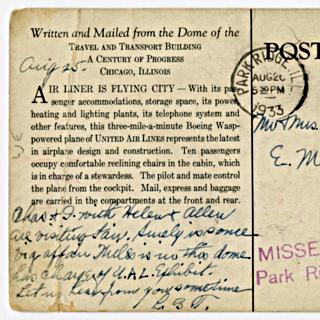 Written and Mailed from the Dome of the
TRAVEL AND TRANSPORT BUILDING
A CENTURY OF PROGRESS
CHICAGO, ILLINOIS
Aug 25.
AIR LINER IS FLYING CITY — With its pas-
senger accommodations, storage space, its power
heating and lighting plants, its telephone system and
other features, this three-mile-a-minute Boeing Wasp-
powered plane of UNITED AIR LINES represents the latest
in airplane design and construction. Ten passengers
occupy comfortable reclining chairs in the cabin, which
is in charge of a stewardess. The pilot and mate control
the plane from the cockpit. Mail, express and baggage
are carried in the compartments at the front and rear.
Chas & I with Helen & Allen
are visiting Fair. Surely is some
big affair. is in the dome
has charge of U.A.L. Exhibit.
Let us hear from you sometime
POST
PARK RIDGE, ILL.
AUG 26
5 30 PM
1933
Mr & Mrs.
E. M
MISSE
Park Ri